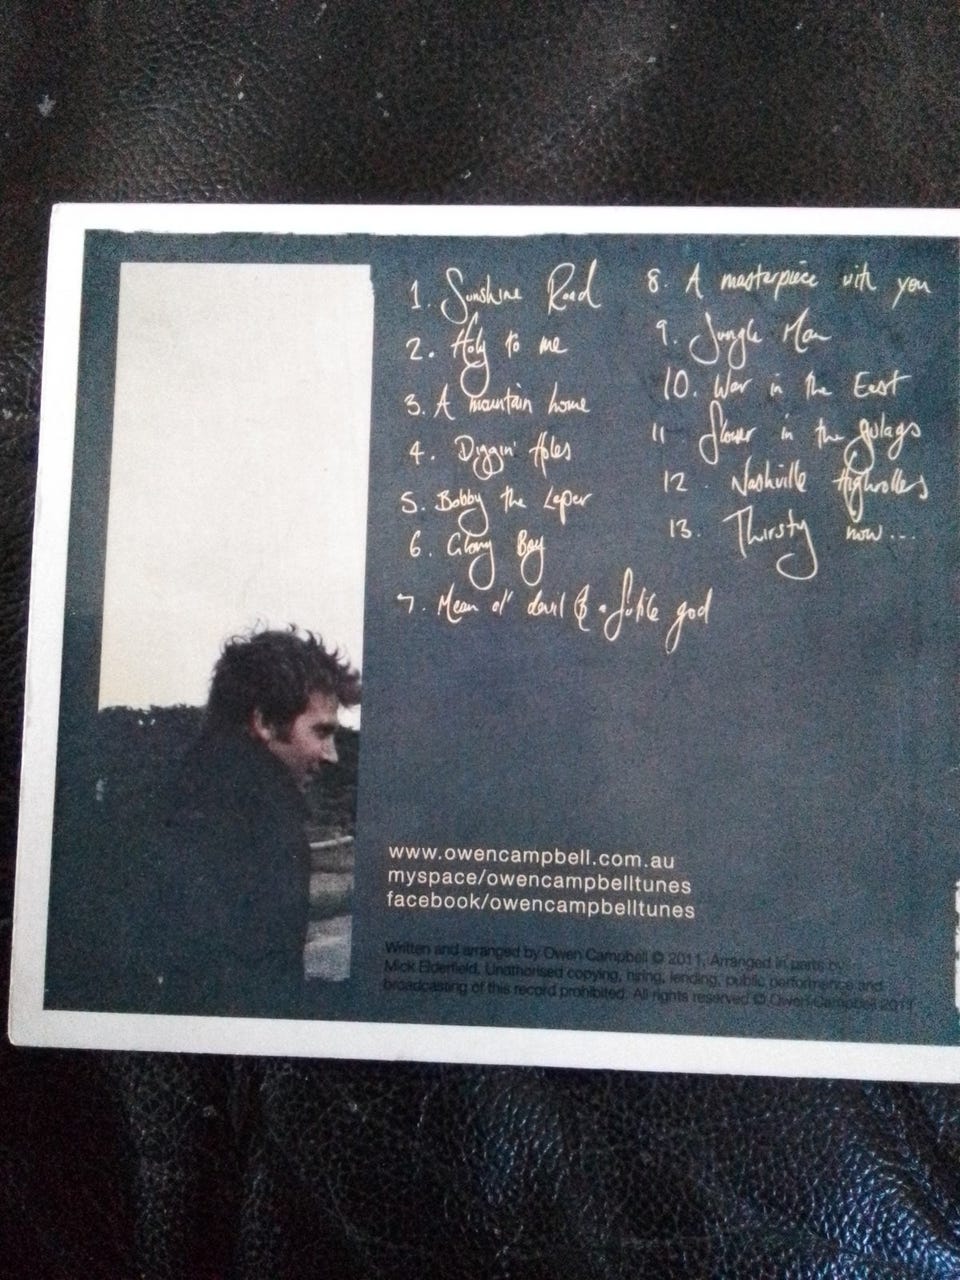 1. Sunshine Road
2. Holy to me
3. A mountain home
4. Diggin' Holes
5. Bobby the Leper
6. Glory Bay
7. Mean ol' devil & a futile god
8. A masterpiece with you
9. Jungle Man
10. War in the East
11 flower in the gulags
12. Nashville Highrollers
13. Thirsty now...
www.owencampbell.com.au
myspace/owencampbelltunes
facebook/owencampbelltunes
Written and arranged by Owen Campbell © 2011. Arranged in parts by
Mick Elderfield. Unathorised copying, hiring, lending, public performance and
broadcasting of this record prohibited. All rights reserved © Owen Campbell 2011.